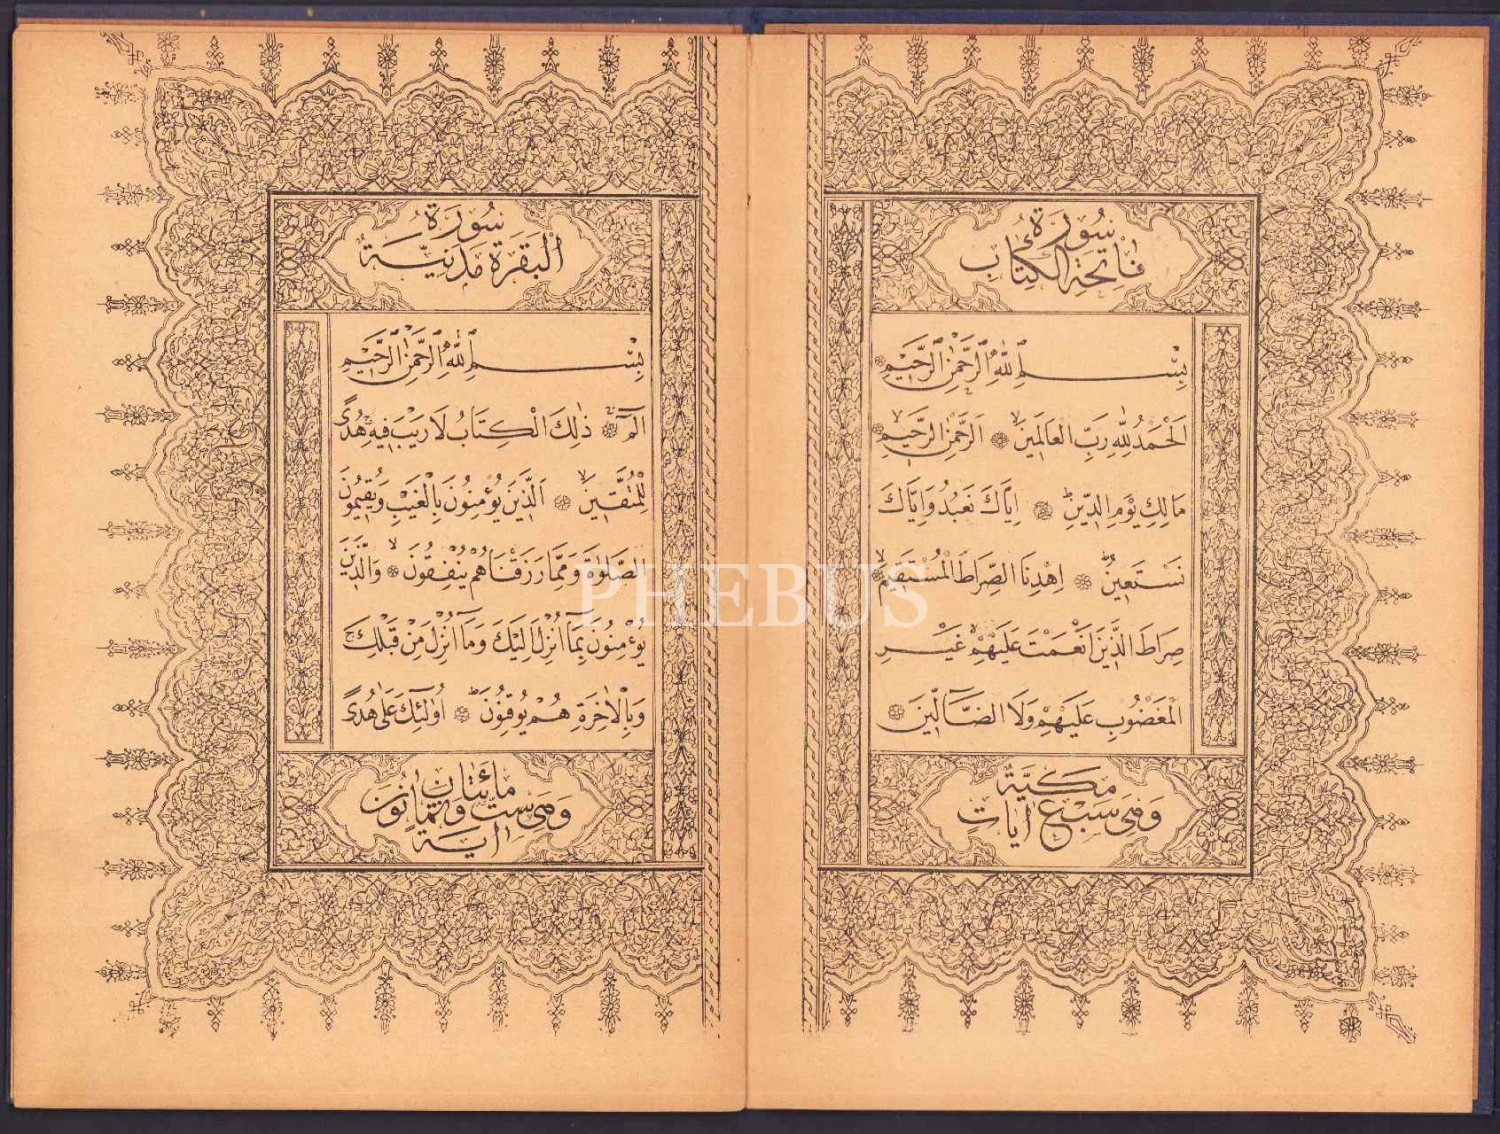 سُورَةُ
فَاتِحَةِ الْكِتَابِ
بِسْمِ اللّٰهِ الرَّحْمٰنِ الرَّحٖيمِ
اَلْحَمْدُ لِلّٰهِ رَبِّ الْعَالَمٖينَۙ اَلرَّحْمٰنِ الرَّحٖيمِۙ
مَالِكِ يَوْمِ الدّٖينِؕ اِيَّاكَ نَعْبُدُ وَاِيَّاكَ
نَسْتَعٖينُؕ اِهْدِنَا الصِّرَاطَ الْمُسْتَقٖيمَۙ
صِرَاطَ الَّذٖينَ اَنْعَمْتَ عَلَيْهِمْۙ غَيْرِ
الْمَغْضُوبِ عَلَيْهِمْ وَلَا الضَّٓالّٖينَ
مَكِّيَّةٌ
وَهِىَ سَبْعُ اٰيَاتٍ
سُورَةُ
الْبَقَرَةِ مَدَنِيَّةٌ
بِسْمِ اللّٰهِ الرَّحْمٰنِ الرَّحٖيمِ
الٓمٓۚ ذٰلِكَ الْكِتَابُ لَا رَيْبَۚ فٖيهِۚ هُدًى
لِلْمُتَّقٖينَۙ اَلَّذٖينَ يُؤْمِنُونَ بِالْغَيْبِ وَيُقٖيمُونَ
الصَّلٰوةَ وَمِمَّا رَزَقْنَاهُمْ يُنْفِقُونَۙ وَالَّذٖينَ
يُؤْمِنُونَ بِمَٓا اُنْزِلَ اِلَيْكَ وَمَٓا اُنْزِلَ مِنْ قَبْلِكَۚ
وَبِالْاٰخِرَةِ هُمْ يُوقِنُونَؕ اُولٰٓئِكَ عَلٰى هُدًى
مِائَتَانِ
وَهِىَ سِتٌّ وَثَمَانُونَ
اٰيَةً
PHEBUS